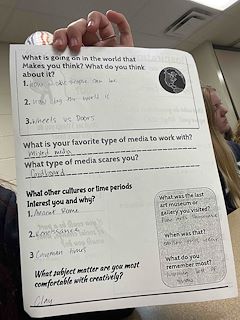 What is going on in the world that
Makes you think? What do you think
about it?
1. How people can be
2. How big the world is
3. Wheels vs Doors
What is your favorite type of media to work with?
Mixed media
What type of media scares you?
Cardboard
What other cultures or time periods
Interest you and why?
1. Ancient Rome
2.
3 Caveman times
What subject matter are you most
comfortable with creatively?
Clay
What was the last
art museum or
gallery you visited?
When was that?
What do you
remember most?